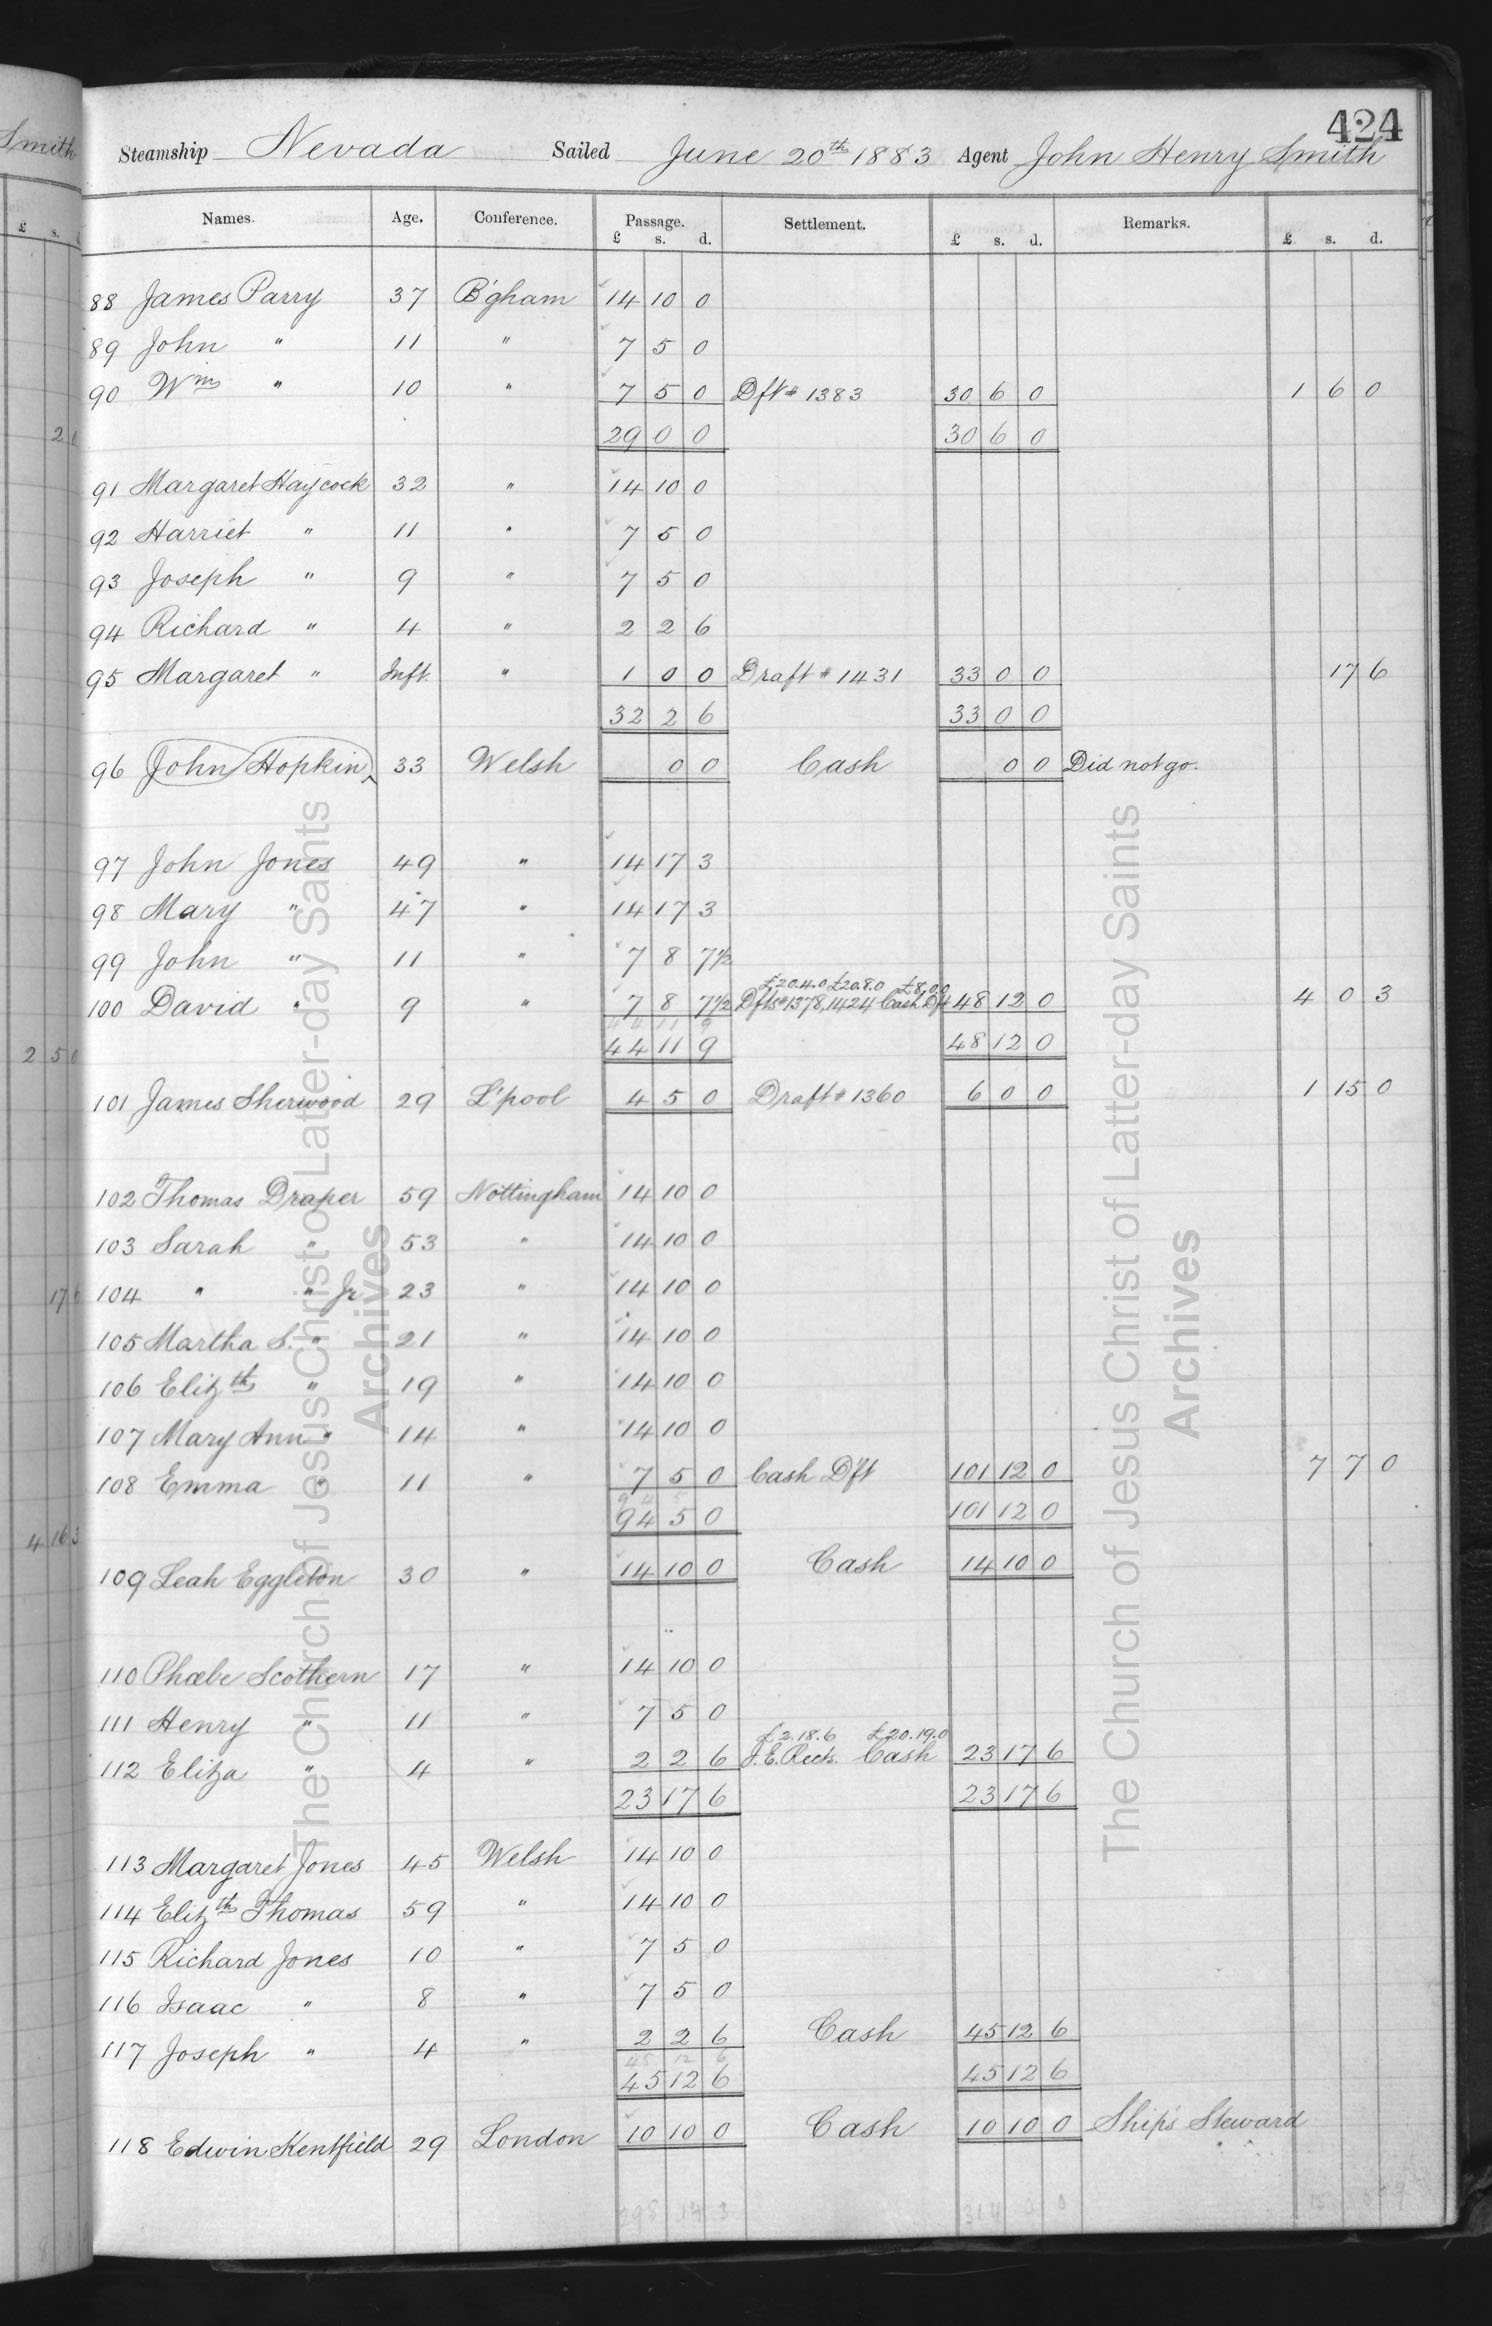 424
Steamship Nevada Sailed June 20th 1883 Agent John Henry Smith
Names. Age. Conference. Passage. Settlement. Remarks.
£ s. d. £ s. d. £ s. d.
88 James Parry 37 B'gham 14 10 0
89 John " 11 " 7 5 0
90 Wm " 10 " 7 5 0 Dft # 1383 30 6 0 1 6 0
29 0 0 30 6 0
91 Margaret Haycock 32 " 14 10 0
92 Harriet " 11 " 7 5 0
93 Joseph " 9 " 7 5 0
94 Richard " 4 " 2 2 6
95 Margaret " Inft. " 1 0 0 Draft # 1431 33 0 0 17 6
32 2 6 33 0 0
96 John Hopkin 33 Welsh 0 0 Cash 0 0 Did not go.
97 John Jones 49 " 14 17 3
98 Mary " 47 " 14 17 3
99 John " 11 " 7 8 7½
£20.4.0 £20.8.0 £8.0.0
100 David " 9 " 7 8 7½ Dfts # 1378, 1424 Cash Dft 48 12 0 4 0 3
44 11 9 48 12 0
101 James Sherwood 29 L'pool 4 5 0 Draft # 1360 6 0 0 1 15 0
102 Thomas Draper 59 Nottingham 14 10 0
103 Sarah " 53 " 14 10 0
104 " " Jr 23 " 14 10 0
105 Martha S. " 21 " 14 10 0
106 Elizth " 19 " 14 10 0
107 Mary Ann " 14 " 14 10 0
108 Emma " 11 " 7 5 0 Cash Dft 101 12 0 7 7 0
94 5 0 101 12 0
109 Leah Eggleton 30 " 14 10 0 Cash 14 10 0
110 Phœbe Scothern 17 " 14 10 0
111 Henry " 11 " 7 5 0
£2.18.6 £20.19.0
112 Eliza " 4 " 2 2 6 J.E. Rects. Cash 23 17 6
23 17 6 23 17 6
113 Margaret Jones 45 Welsh 14 10 0
114 Elizth Thomas 59 " 14 10 0
115 Richard Jones 10 " 7 5 0
116 Isaac " 8 " 7 5 0
117 Joseph " 4 " 2 2 6 Cash 45 12 6
45 12 6 45 12 6
118 Edwin Kentfield 29 London 10 10 0 Cash 10 10 0 Ship's Steward
298 14 3 314 0 0
Smith
£ s.
2 0
2 5 0
17 6
4 16 3
The Church of Jesus Christ of Latter-day Saints
Archives
The Church of Jesus Christ of Latter-day Saints
Archives